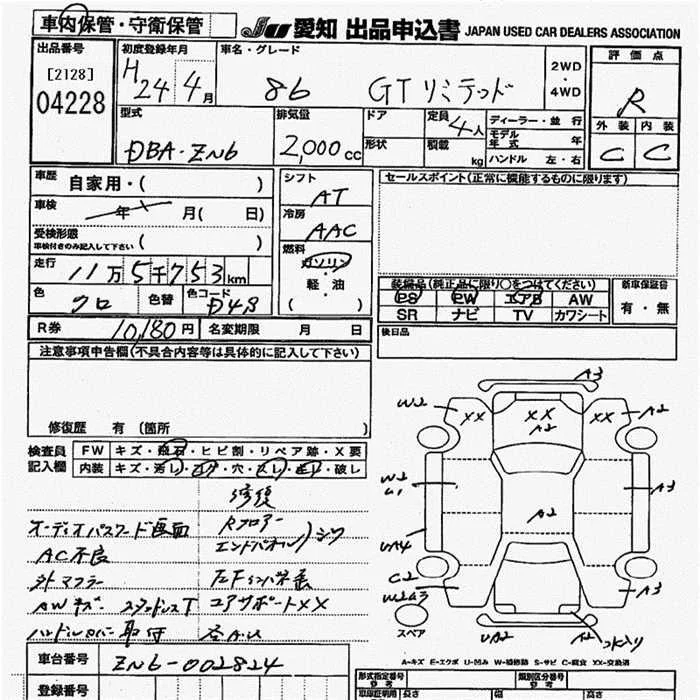 車内保管・守衛保管
JU 愛知 出品申込書 JAPAN USED CAR DEALERS ASSOCIATION
出品番号
[2128]
04228
初度登録年月
H 24 4月
車名・グレード
86 GTリミテッド
2WD
・
4WD
評価点
R
外装 内装
C C
型式
DBA・ZN6
排気量
2,000cc
ドア
形状
定員 4人
積載 kg
ディーラー・並行
モデル年式 年
ハンドル 左・右
車歴 自家用・( )
車検 年 月( 日)
受検形態
車検付きのみ記入して下さい ( )
走行 11万5千753km
色 クロ 色替 色コード D4S
シフト
AT
冷房
AAC
燃料
ガソリン
・
軽・油
( )
セールスポイント(正常に機能するものに限ります)
装備品(純正品に限り○をつけてください)
PS PW エアB AW
SR ナビ TV カワシート
新車保証書
有・無
後日品
R券 10,180円 名変期限 月 日
注意事項申告欄(不具合内容等は具体的に記入して下さい)
修復歴 有 (箇所 )
検査員記入欄
FW キズ・飛石・ヒビ割・リペア跡・X要
内装 キズ・汚れ・コゲ・穴・スレ・破レ
修復
オーディオパスワード画面 Rフロアー
エンドパネル)シワ
AC不良
外マフラー
AWキズ スタッドレスT コアサポートXX
ハンドルカバー取付
車台番号 ZN6-002824
登録番号
A3
W2 XX XX XX A2
A2
W2
U1
A3
A2
UA4
C2
W2A3
A3
スペア
UA2
A2
A-キズ E-エクボ U-凹み W-補修跡 S-サビ C-腐食 XX-交換済
型式指定番号
参考
類別区分番号
参考
車庫証明用 長さ 幅 高さ